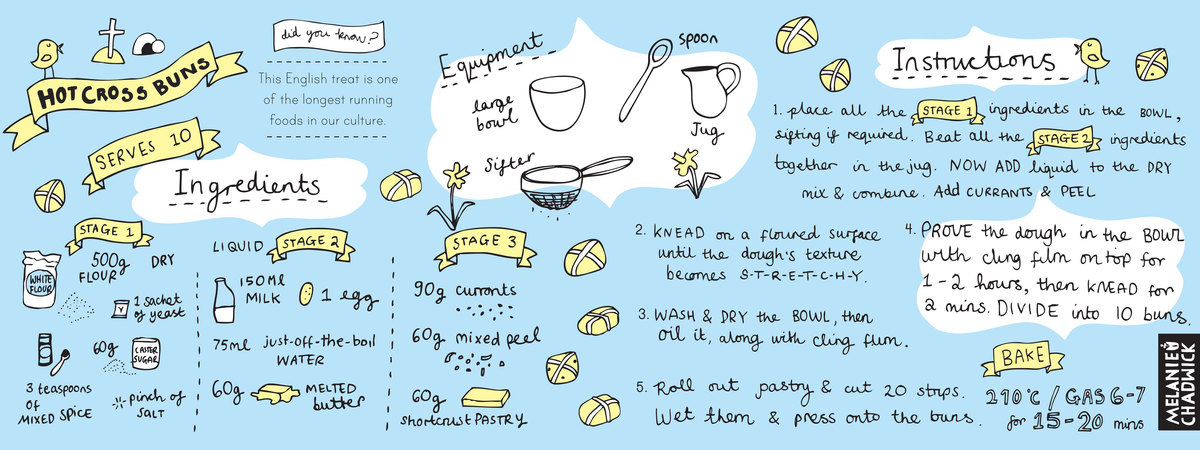 HOT CROSS BUNS
did you know?
This English treat is one
of the longest running
foods in our culture.
SERVES 10
Ingredients
STAGE 1
WHITE
FLOUR
500g DRY
FLOUR
1 sachet
of yeast
60g
CASTER
SUGAR
3 teaspoons
of
MIXED SPICE
pinch of
SALT
LIQUID STAGE 2
150ml
MILK
1 egg
75ml just-off-the-boil
WATER
60g MELTED
butter
STAGE 3
90g currants
60g mixed peel
60g
shortcrust PASTRY
Equipment
large
bowl
spoon
Jug
Sifter
Instructions
1. place all the STAGE 1 ingredients in the BOWL,
sifting if required. Beat all the STAGE 2 ingredients
together in the jug. NOW ADD liquid to the DRY
mix & combine. Add CURRANTS & PEEL
2. KNEAD on a floured surface
until the dough's texture
becomes S-T-R-E-T-C-H-Y.
3. WASH & DRY the BOWL, then
oil it, along with cling flim.
4. PROVE the dough in the BOWL
with cling film on top for
1-2 hours, then KNEAD for
2 mins. DIVIDE into 10 buns.
5. Roll out pastry & cut 20 strips.
Wet them & press onto the buns.
BAKE
210°C / GAS 6-7
for 15-20 mins
MELANIE
CHADWICK